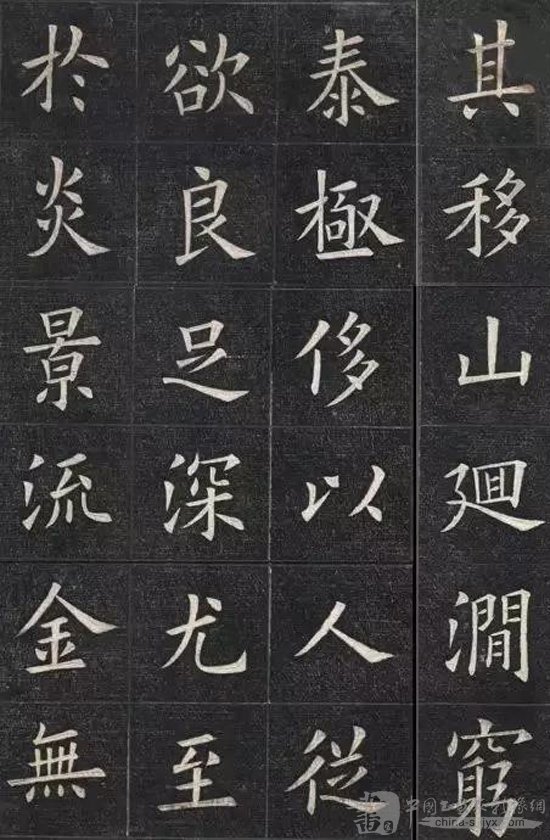 其移山迴澗窮
泰極侈以人從
欲良足深尤至
於炎景流金無
中国书画人物影像网
china-shjyx.com